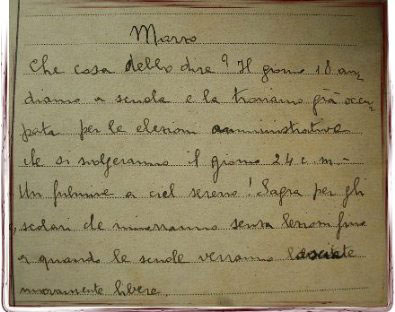 Marzo
Che cosa debbo dire? Il giorno 18 an-
diamo a scuola e la troviamo già occu-
pata per le elezioni amministrative
che si svolgeranno il giorno 24 c. m. -
Un fulmine a ciel sereno! Sagra per gli
scolari che rimarranno senza lezioni fino
a quando le scuole verranno lasciate
nuovamente libere.